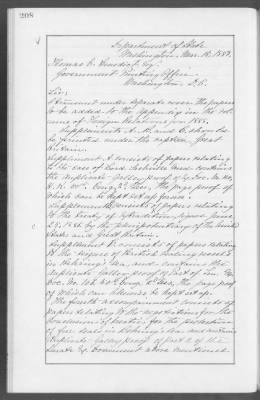 208
Department of State
Washington, Mar. 18, 1889.
Thomas E. Benedict, Esq.
Government Printing Office
Washington, D.C.
Sir:
I transmit under separate cover the papers
to be added to the appendix in the volume
of Foreign Relations for 1888.
Supplements A. B. and C. should
be printed under the caption, Great
Britain.
Supplement A consists of papers relating
to the case of Lord Sackville and contains
the duplicate galley proof of Ex. Doc. No.
H. R. 50th Cong. 2d Sess., the page proof of
which can be kept set up for use.
Supplement B consists of papers relating
to the treaty of Extradition, signed June
25, 1886 by the plenipotentiary of the United
States and Great Britain.
Supplement C consists of papers relating
to the seizure of British Sealing vessels
in Behring's Sea, and contains the
duplicate galley proof of Part of Sen. Ex.
Doc. No. 106, 50th Cong. 2d Sess., the page proof
of which can likewise be kept set up.
The fourth accompaniment consists of
papers relating to the negotiations for the
conclusion of treaties for the protection
of fur seals in Behring's Sea and contains
duplicate galley proof of Part 2 of the
Senate Ex. Document above mentioned.